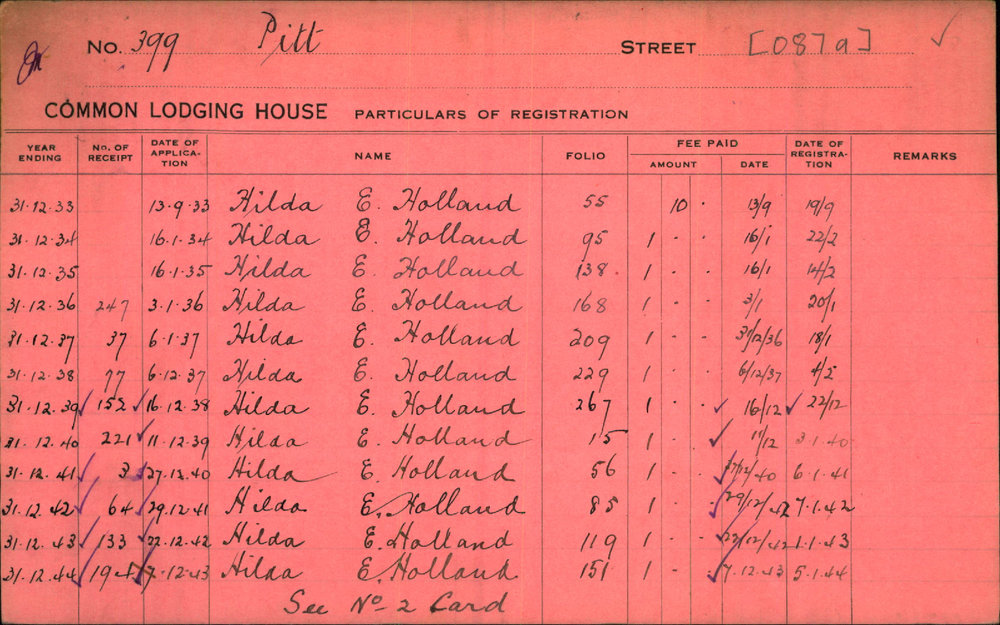 No. 399 Pitt STREET [087a]
COMMON LODGING HOUSE PARTICULARS OF REGISTRATION
YEAR ENDING No. OF RECEIPT DATE OF APPLICA-TION NAME FOLIO FEE PAID AMOUNT DATE DATE OF REGISTRA-TION REMARKS
31.12.33 13.9.33 Hilda E. Holland 55 10 . 13/9 19/9
31.12.34 16.1.34 Hilda E. Holland 95 1 . . 16/1 22/2
31.12.35 16.1.35 Hilda E. Holland 138. 1 . . 16/1 14/2
31.12.36 247 3.1.36 Hilda E. Holland 168 1 . . 3/1 20/1
31.12.37 37 6.1.37 Hilda E. Holland 209 1 . . 31/12/36 18/1
31.12.38 77 6.12.37 Hilda E. Holland 229 1 . . 6/12/37 4/2
31.12.39 ✓ 152 ✓ 16.12.38 Hilda E. Holland 267 1 . . ✓ 16/12 ✓ 22/12
31.12.40 221 ✓ 11.12.39 Hilda E. Holland 15 1 . . ✓ 11/12 3.1.40
31.12.41 ✓ 3 ✓ 27.12.40 Hilda E. Holland 56 1 . . ✓ 27/12/40 6.1.41
31.12.42 ✓ 64 ✓ 29.12.41 Hilda E. Holland 85 1 . . ✓ 29/12/42 7.1.42
31.12.43 ✓ 133 ✓ 22.12.42 Hilda E. Holland 119 1 . . ✓ 22/12/42 1.1.43
31.12.44 ✓ ✓ 7.12.43 Hilda E. Holland 151 1 . . ✓ 7.12.43 5.1.44
See No 2 Card